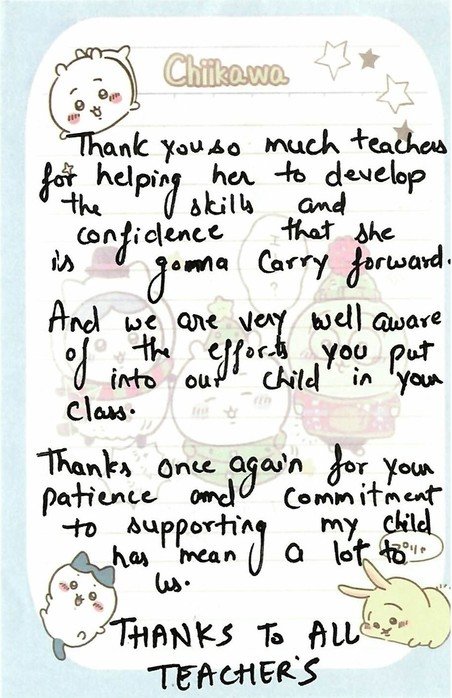 Chiikawa
Thank you so much teachers
for helping her to develop
the skills and
confidence that she
is gonna carry forward.
And we are very well aware
of the efforts you put
into our child in your
class.
Thanks once again for your
patience and commitment
to supporting my child
has mean a lot to
us.
THANKS TO ALL
TEACHER'S